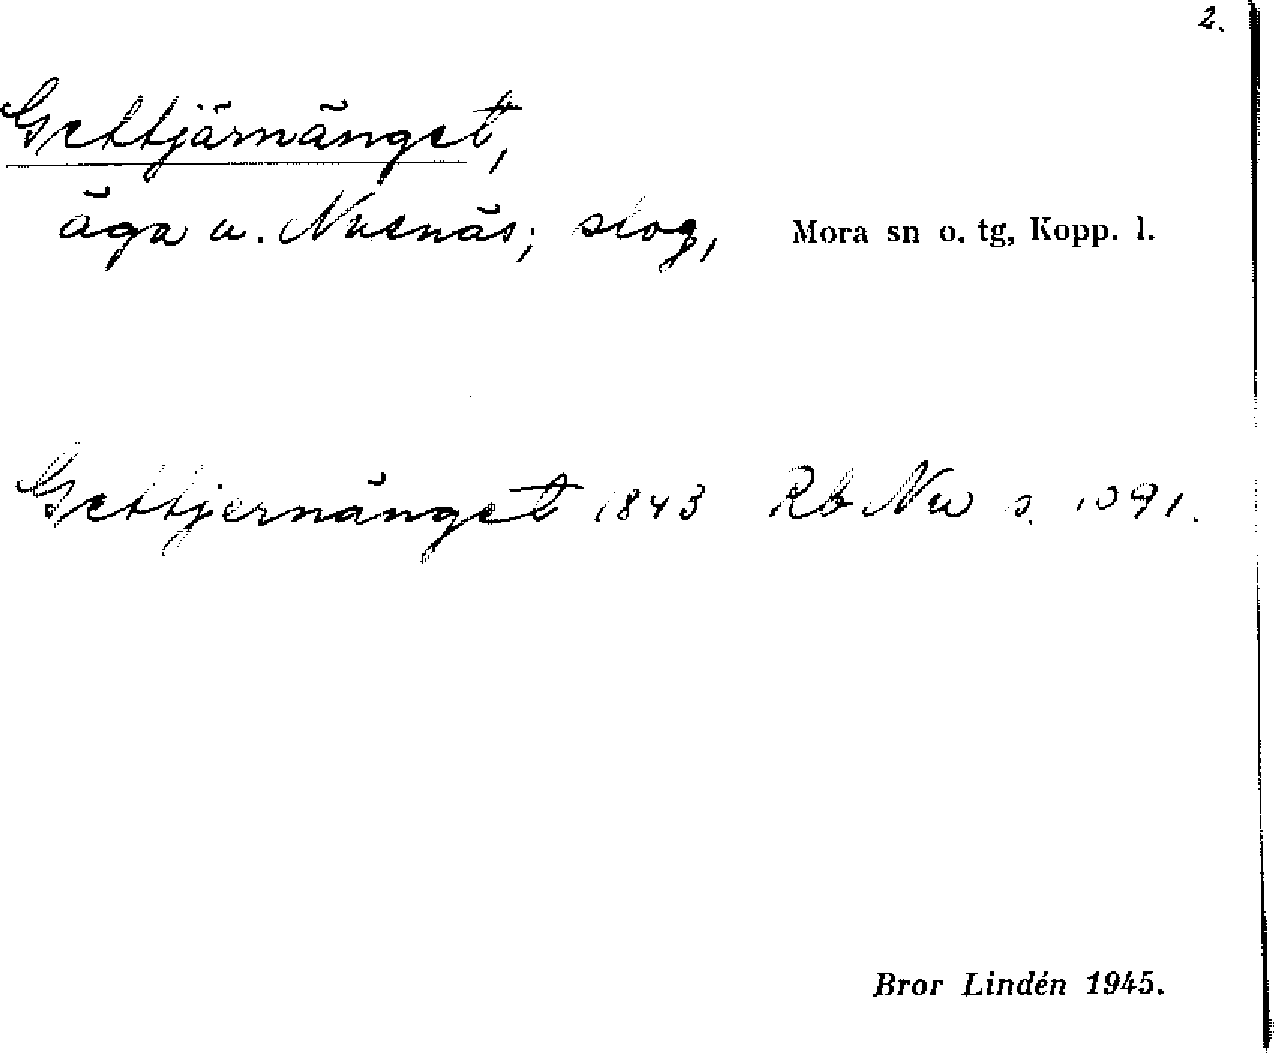 2.
Gettjärnänget,
äga u. Nusnäs; slog, Mora sn o. tg, Kopp. l.
Gettjernänget 1843 Rb Nu s. 1091.
Bror Lindén 1945.